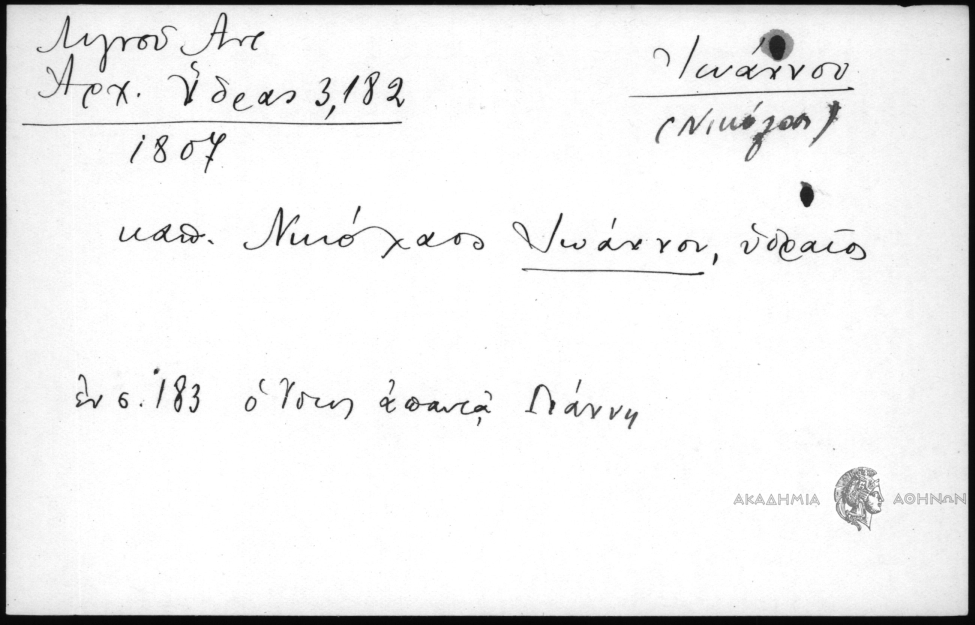 Λιγνοῦ Αντ
Ἀρχ. Ὕδρας 3,182
1807
Ἰωάννου
(Νικόλαος)
καπ. Νικόλαος Ἰωάννου, ὑδραῖος
ἐν σ. 183 ὁ ἴδιος ἀπαντᾷ Γιάννη
ΑΚΑΔΗΜΙΑ ΑΘΗΝΩΝ